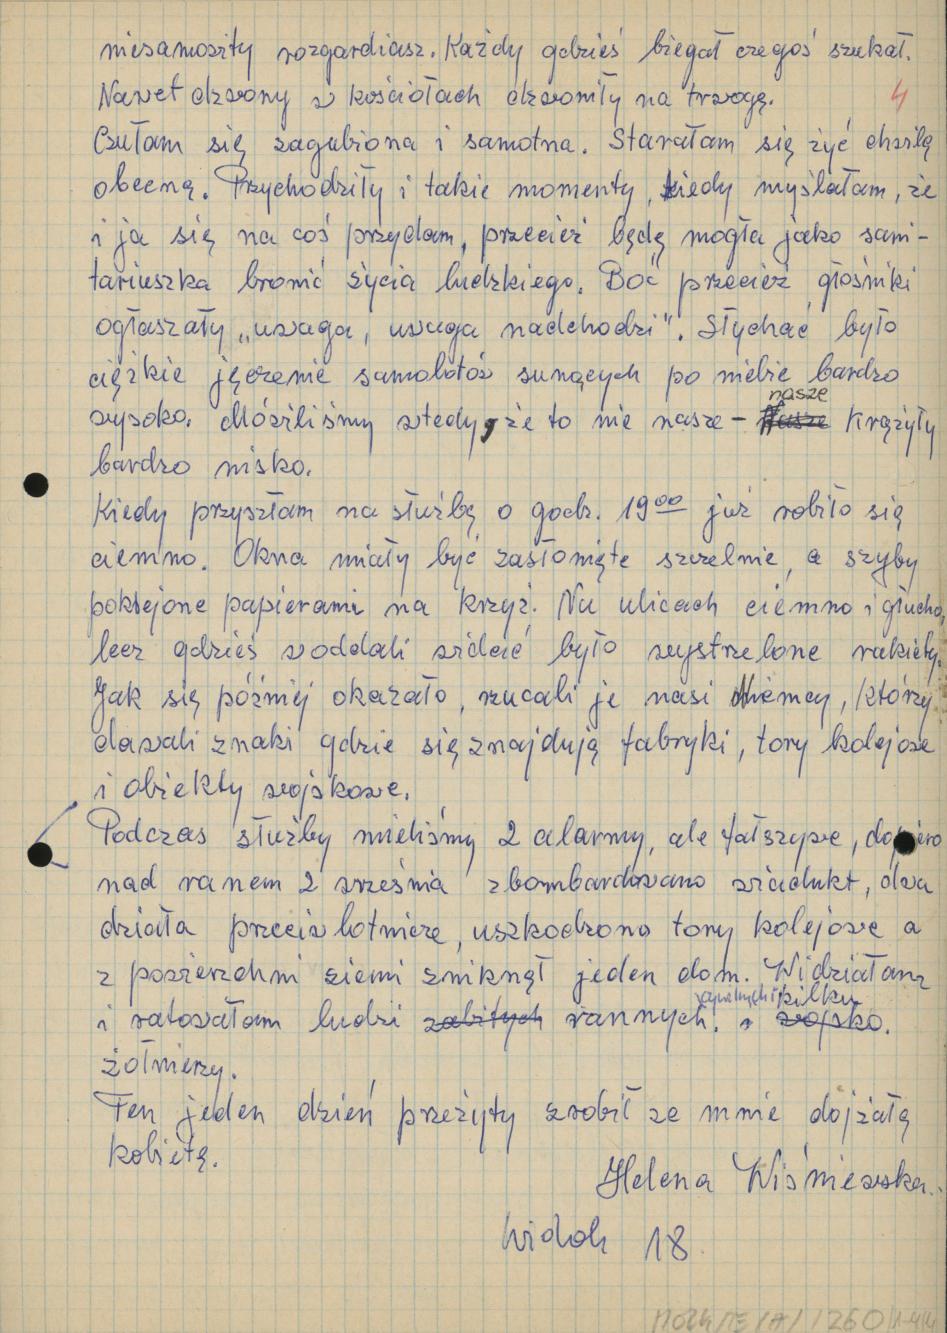 niesamowity rozgardiasz. Każdy gdzieś biegał czegoś szukał.
Nawet dzwony w kościołach dzwoniły na trwogę.
4
Czułam się zagubiona i samotna. Starałam się żyć chwilą
obecną. Przychodziły i takie momenty, kiedy myślałam, że
i ja się na coś przydam, przecież będę mogła jako sani-
tariuszka bronić życia ludzkiego. Boć przecież głośniki
ogłaszały „uwaga, uwaga nadchodzi". Słychać było
ciężkie jęczenie samolotów sunących po niebie bardzo
nasze
wysoko. Mówiliśmy wtedy, że to nie nasze – nasze krążyły
bardzo nisko.
Kiedy przyszłam na służbę o godz. 19⁰⁰ już robiło się
ciemno. Okna miały być zasłonięte szczelnie, a szyby
poklejone papierami na krzyż. Na ulicach ciemno i głucho,
lecz gdzieś w oddali widać było wystrzelone rakiety.
Jak się później okazało, rzucali je nasi Niemcy, którzy
dawali znaki gdzie się znajdują fabryki, tory kolejowe
i obiekty wojskowe.
Podczas służby mieliśmy 2 alarmy, ale fałszywe, dopiero
nad ranem 2 września zbombardowano wiadukt, dwa
działa przeciwlotnicze, uszkodzono tory kolejowe a
z powierzchni ziemi zniknął jeden dom. Widziałam
kilku
i ratowałam ludzi zabitych rannych. i wojsko.
żołnierzy.
Ten jeden dzień przeżyty zrobił ze mnie dojżałą
kobietę.
Helena Wiśniewska.
Widok 18